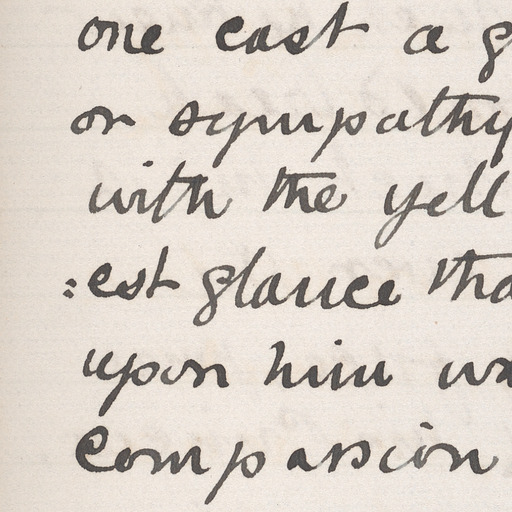 one cast a g
or sympathy
with the yell
:est glance tha
upon him wa
compassion